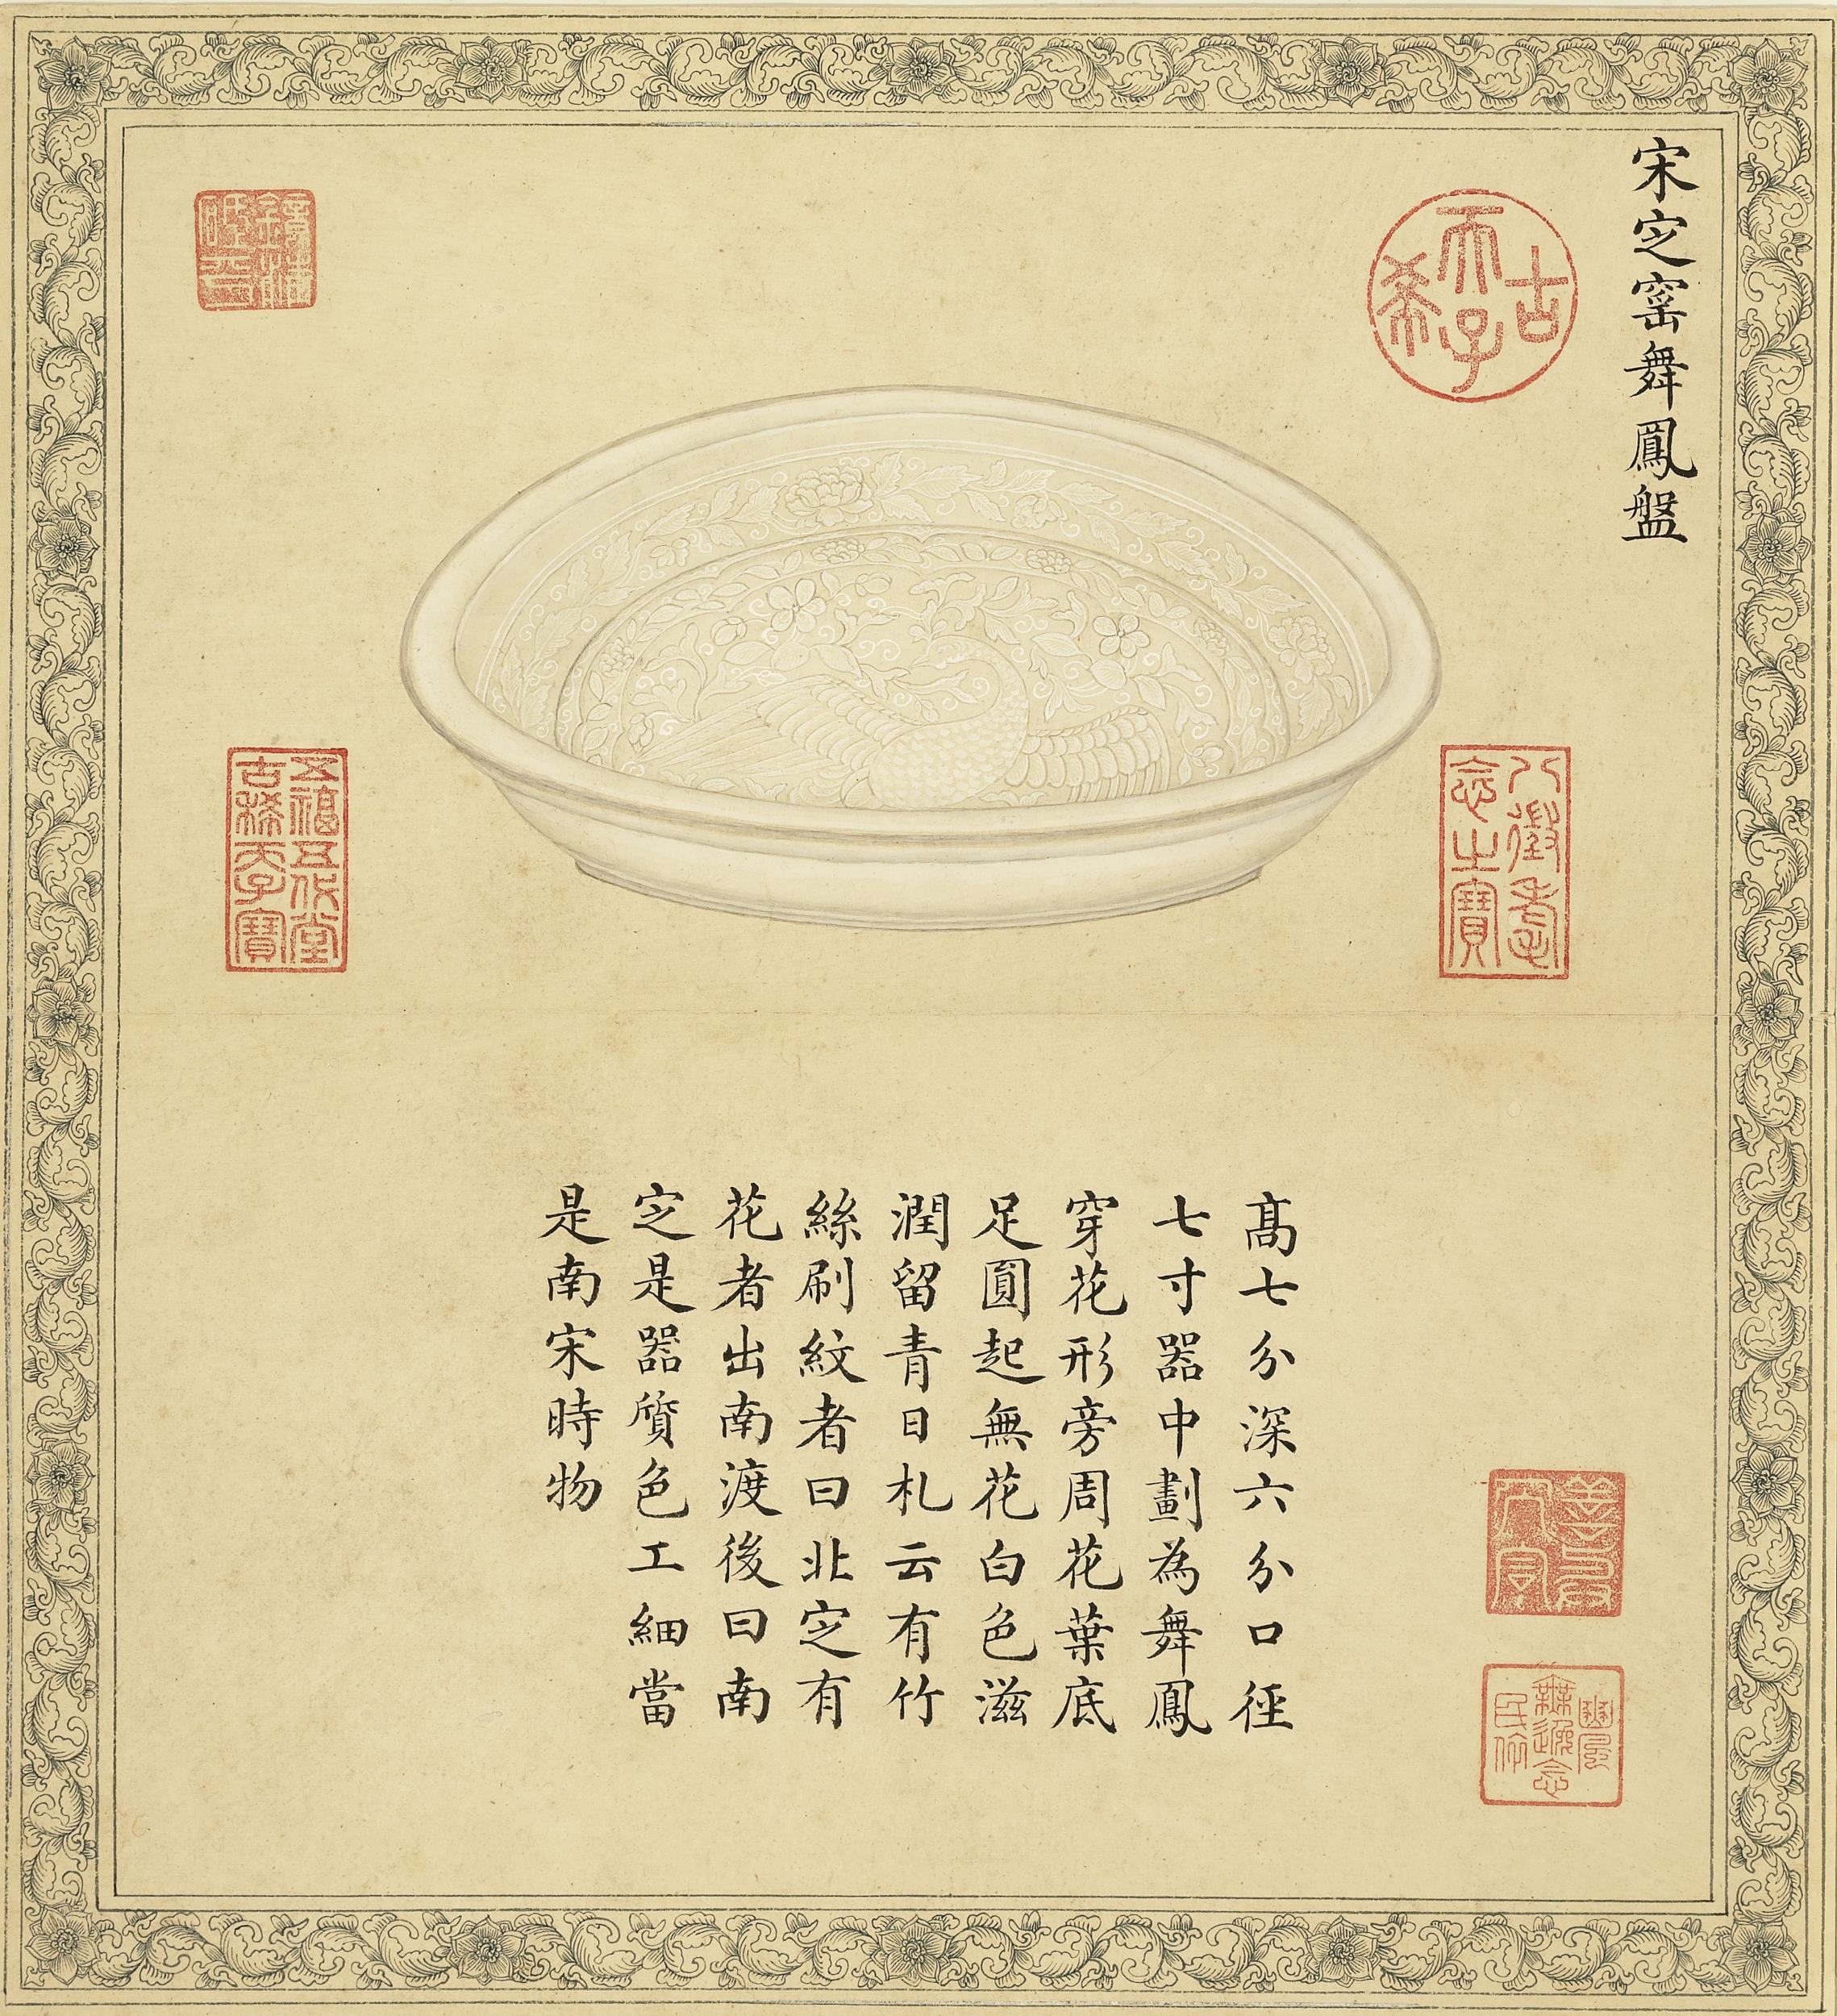 宋定窰舞鳳盤
古
天子
希
八徵耄
念之寶
五福五代堂
古稀天子寶
高七分深六分口徑
七寸器中劃為舞鳳
穿花形旁周花葉底
足圓起無花白色滋
潤留青日札云有竹
絲刷紋者曰北定有
花者出南渡後曰南
定是器質色工細當
是南宋時物